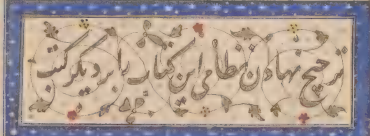 ترجیح نهادن نظامی این کتاب را بر دیگر کتب